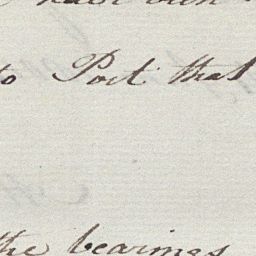 have been
to Port that
the bearings